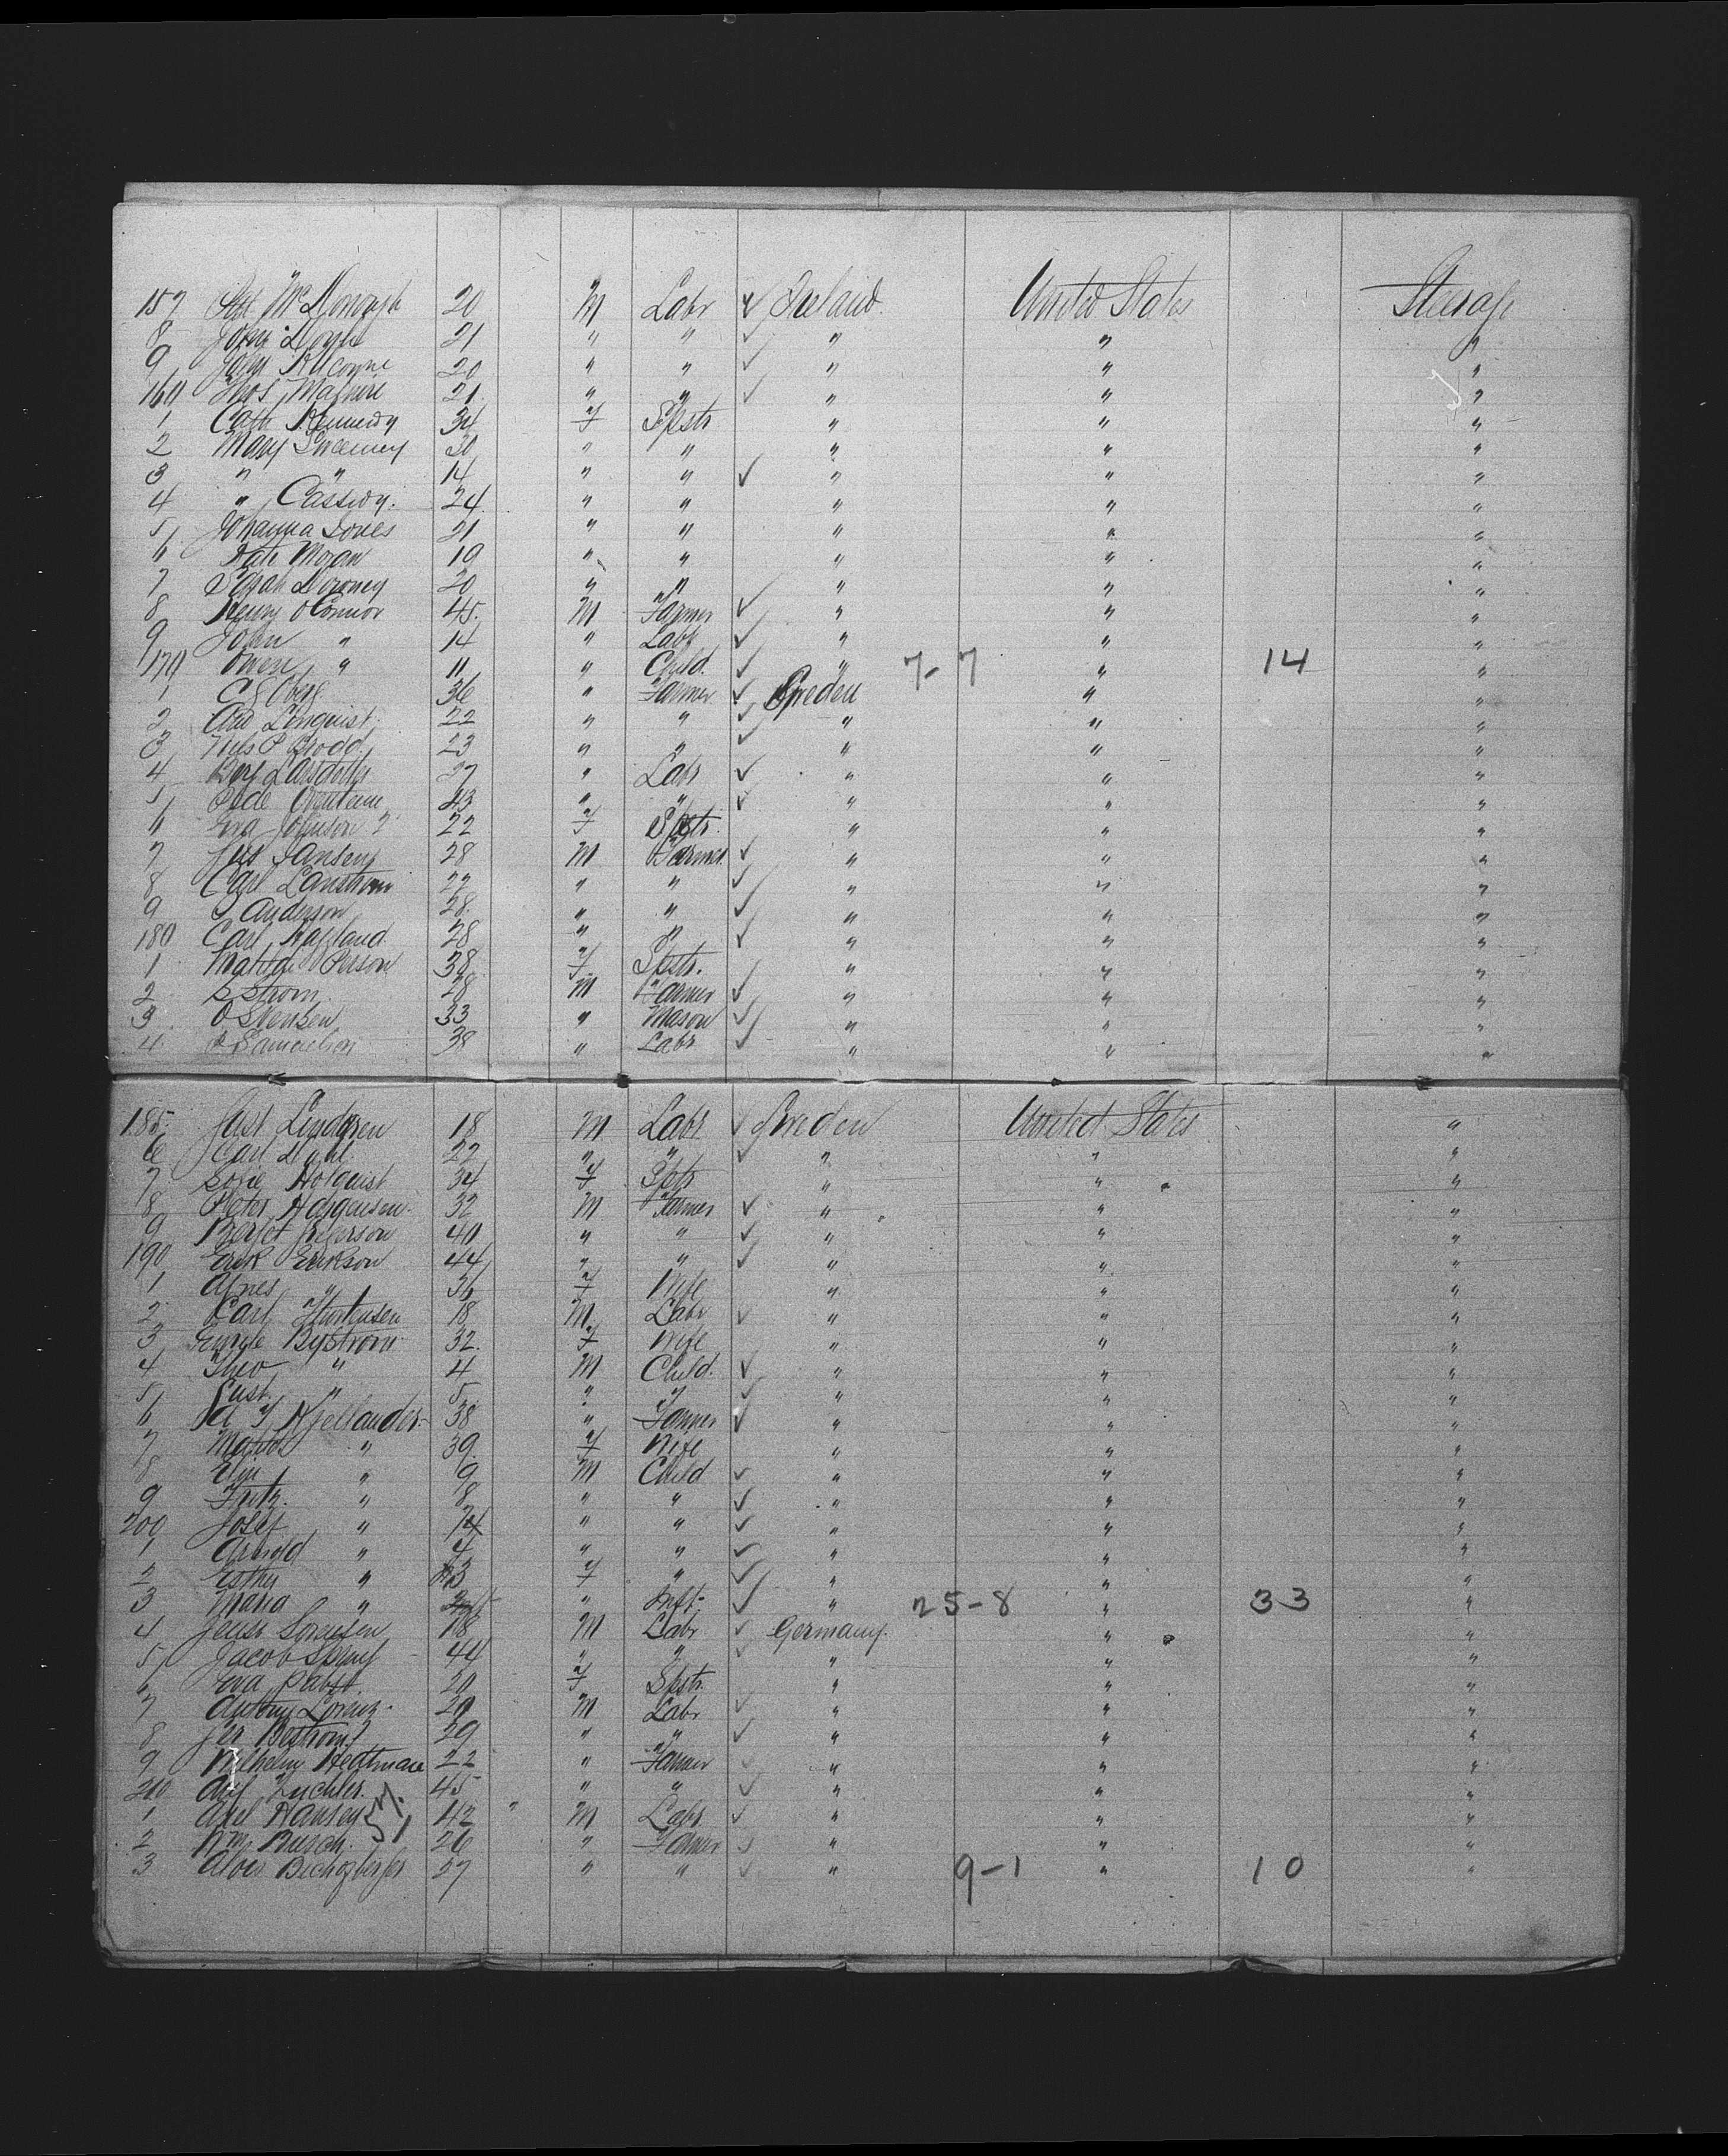 157 Pat McDonough 20 M Labr ✓ Ireland United States Steerage
8 John Doyle 21 " " ✓ " " "
9 John 20 " " ✓ " " "
160 Thos Maguire 21 " " ✓ " " "
1 Cath Kennedy 34 F Spstr " " "
2 Mary Sweeney 30 " " " " "
3 " " 14 " " ✓ " " "
4 " Cassidy. 24 " " " " "
5 Johanna Jones 21 " " " " "
6 Kate Moran 19 " " " " "
7 Sarah Doroney 20 " " " " "
8 Henry O'Connor 45. M Farmer ✓ " " "
9 John " 14 " Labr ✓ " " "
170 Owen " 11 " Child. ✓ " 7-7 " 14 "
1 C G Oberg 36 " Farmer ✓ Sweden " "
2 And Linquist 22 " " ✓ " " "
3 Nils P Brodd 23 " " ✓ " " "
4 Larsdotter 27 " Labr ✓ " " "
5 43 " " ✓ " " "
6 Eva Johnson 22 F Spstr. " " "
7 Jansen 28 M Farmer ✓ " " "
8 Carl Lanstrom 27 " " ✓ " " "
9 Anderson 28. " " ✓ " " "
180 Carl 28 " " ✓ " " "
1 Matilda Person 38 F Spstr. " " "
2 S Strom 28 M Farmer ✓ " " "
3 O Svensen 33 " Mason ✓ " " "
4 Samuelson 38 " Labr ✓ " " "
185. Gust Lindgren 18 M Labr ✓ Sweden United States "
6 Carl Dahl 22 " " ✓ " " "
7 Sofie Holquist 34 F Spstr " " "
8 Peter Hagensen 32 M Farmer ✓ " " "
9 Peterson 40 " " ✓ " " "
190 Erik Erikson 44 " " ✓ " " "
1 Agnes " 36 F Wife " " "
2 Carl 18 M Labr ✓ " " "
3 Bystrom 32. F Wife " " "
4 Theo " 4 M Child. ✓ " " "
5 Gust. " 5 " " ✓ " " "
6 Kjellander 38 " Farmer ✓ " " "
7 Matilda " 39 F Wife " " "
8 Elin " 9 M Child ✓ " " "
9 Fritz. " 8 " " ✓ " " "
200 Josef " " " ✓ " " "
1 Arvid " 4 " " ✓ " " "
2 Esther " 3 F " ✓ " " "
3 Maria " " Inft- ✓ " 25-8 " 33 "
4 Jens Sorensen 18 M Labr ✓ Germany. " "
5 Jacob 44 " " ✓ " " "
6 Eva Pabst. 20 F Spstr. " " "
7 Anton Lorenz. 20 M Labr ✓ " " "
8 29 " " ✓ " " "
9 Wilhelm 22 " Farmer ✓ " " "
210 45 " " ✓ " " "
1 Axel Hansen 42 " M Labr ✓ " " "
2 Wm Busch. 26 " Farmer ✓ " " "
3 Alois 27 " " ✓ " 9-1 " 10 "